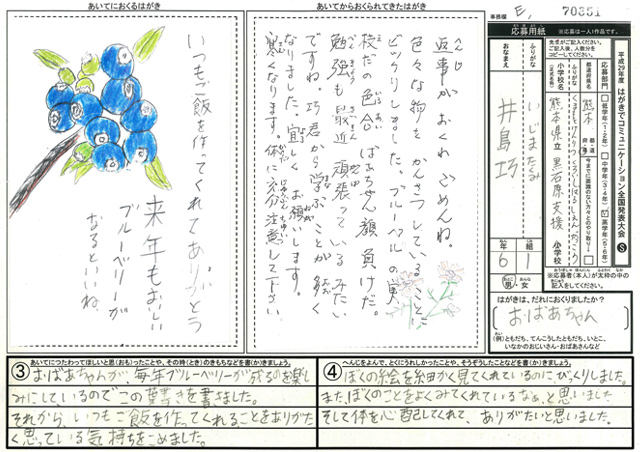 あいてにおくるはがき
いつもご飯を作ってくれてありがとう
来年もおいしい
ブルーベリーが
なるといいね。
あいてからおくられてきたはがき
返事がおくれごめんね。
色々な物をかんさつしていることに
ビックリしました。ブルーベリーの実
枝だの色合 ばあちゃん顔負けだ。
勉強も最近頑張っているみたい
ですね。巧君から学ぶことが多く
なりました。宜しくお願いします。
寒くなります。体に充分注意して下さい
事務欄 E, 70351
平成29年度 はがきでコミュニケーション全国発表大会 S
応募用紙
※応募は一人1作品です。
応募部門
低学年(1・2年)
中学年(3・4年)
高学年(5・6年)
都道府県名
熊本
小学校名
熊本県立 黒石原支援 小学校
ふりがな
いじまたくみ
おなまえ
井島巧
年 6
組 1
男 女
※応募者(本人)が太枠の中の
記入をしてください。
はがきは、だれにおくりましたか?
おばあちゃん
(例)ともだち、てんこうしたともだち、いとこ、
いなかのおじいさん・おばあさんなど
あいてにつたわってほしいと思(おも)ったことや、その時(とき)のきもちなどを書(か)きましょう。
③ おばあちゃんが、毎年ブルーベリーが成るのを楽し
みにしているのでこの葉書きを書きました。
それから、いつもご飯を作ってくれることをありがた
く思っている気持ちをこめました。
へんじをよんで、とくにうれしかったことや、そうぞうしたことなどを書(か)きましょう。
④ ぼくの絵を細かく見てくれているのにびっくりしました。
また、ぼくのことをよくみてくれているなぁ、と思いました
そして体を心配してくれて、ありがたいと思いました。